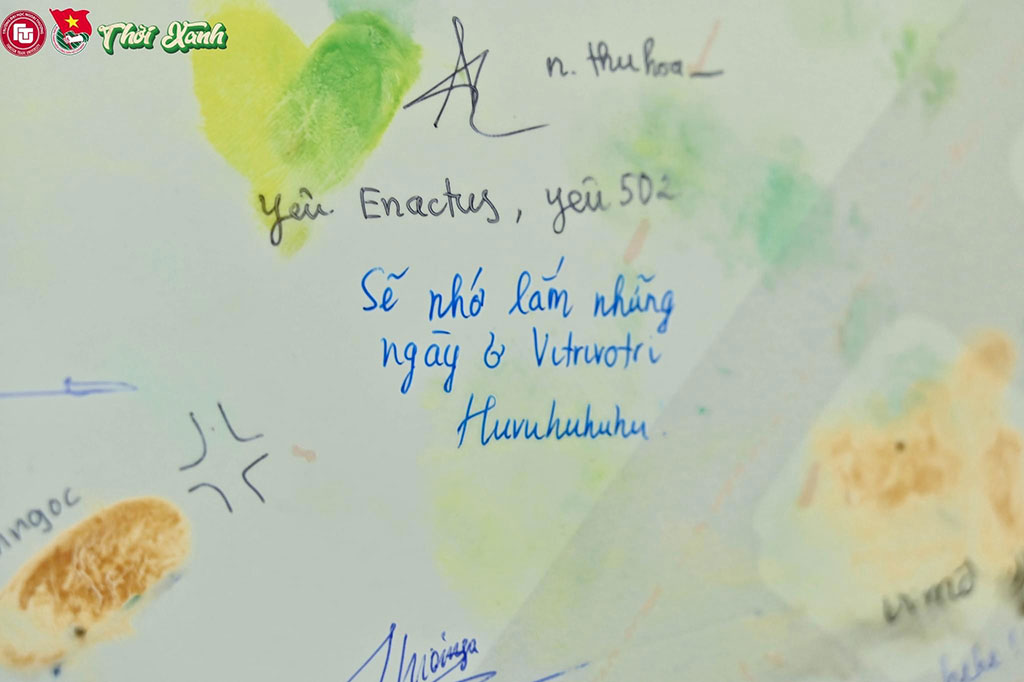 Thời Xanh
n. thu hoa
yêu Enactus, yêu 502
Sẽ nhớ lắm những
ngày ở Vitrivotri
Huvuhuhuhu.
ngoc